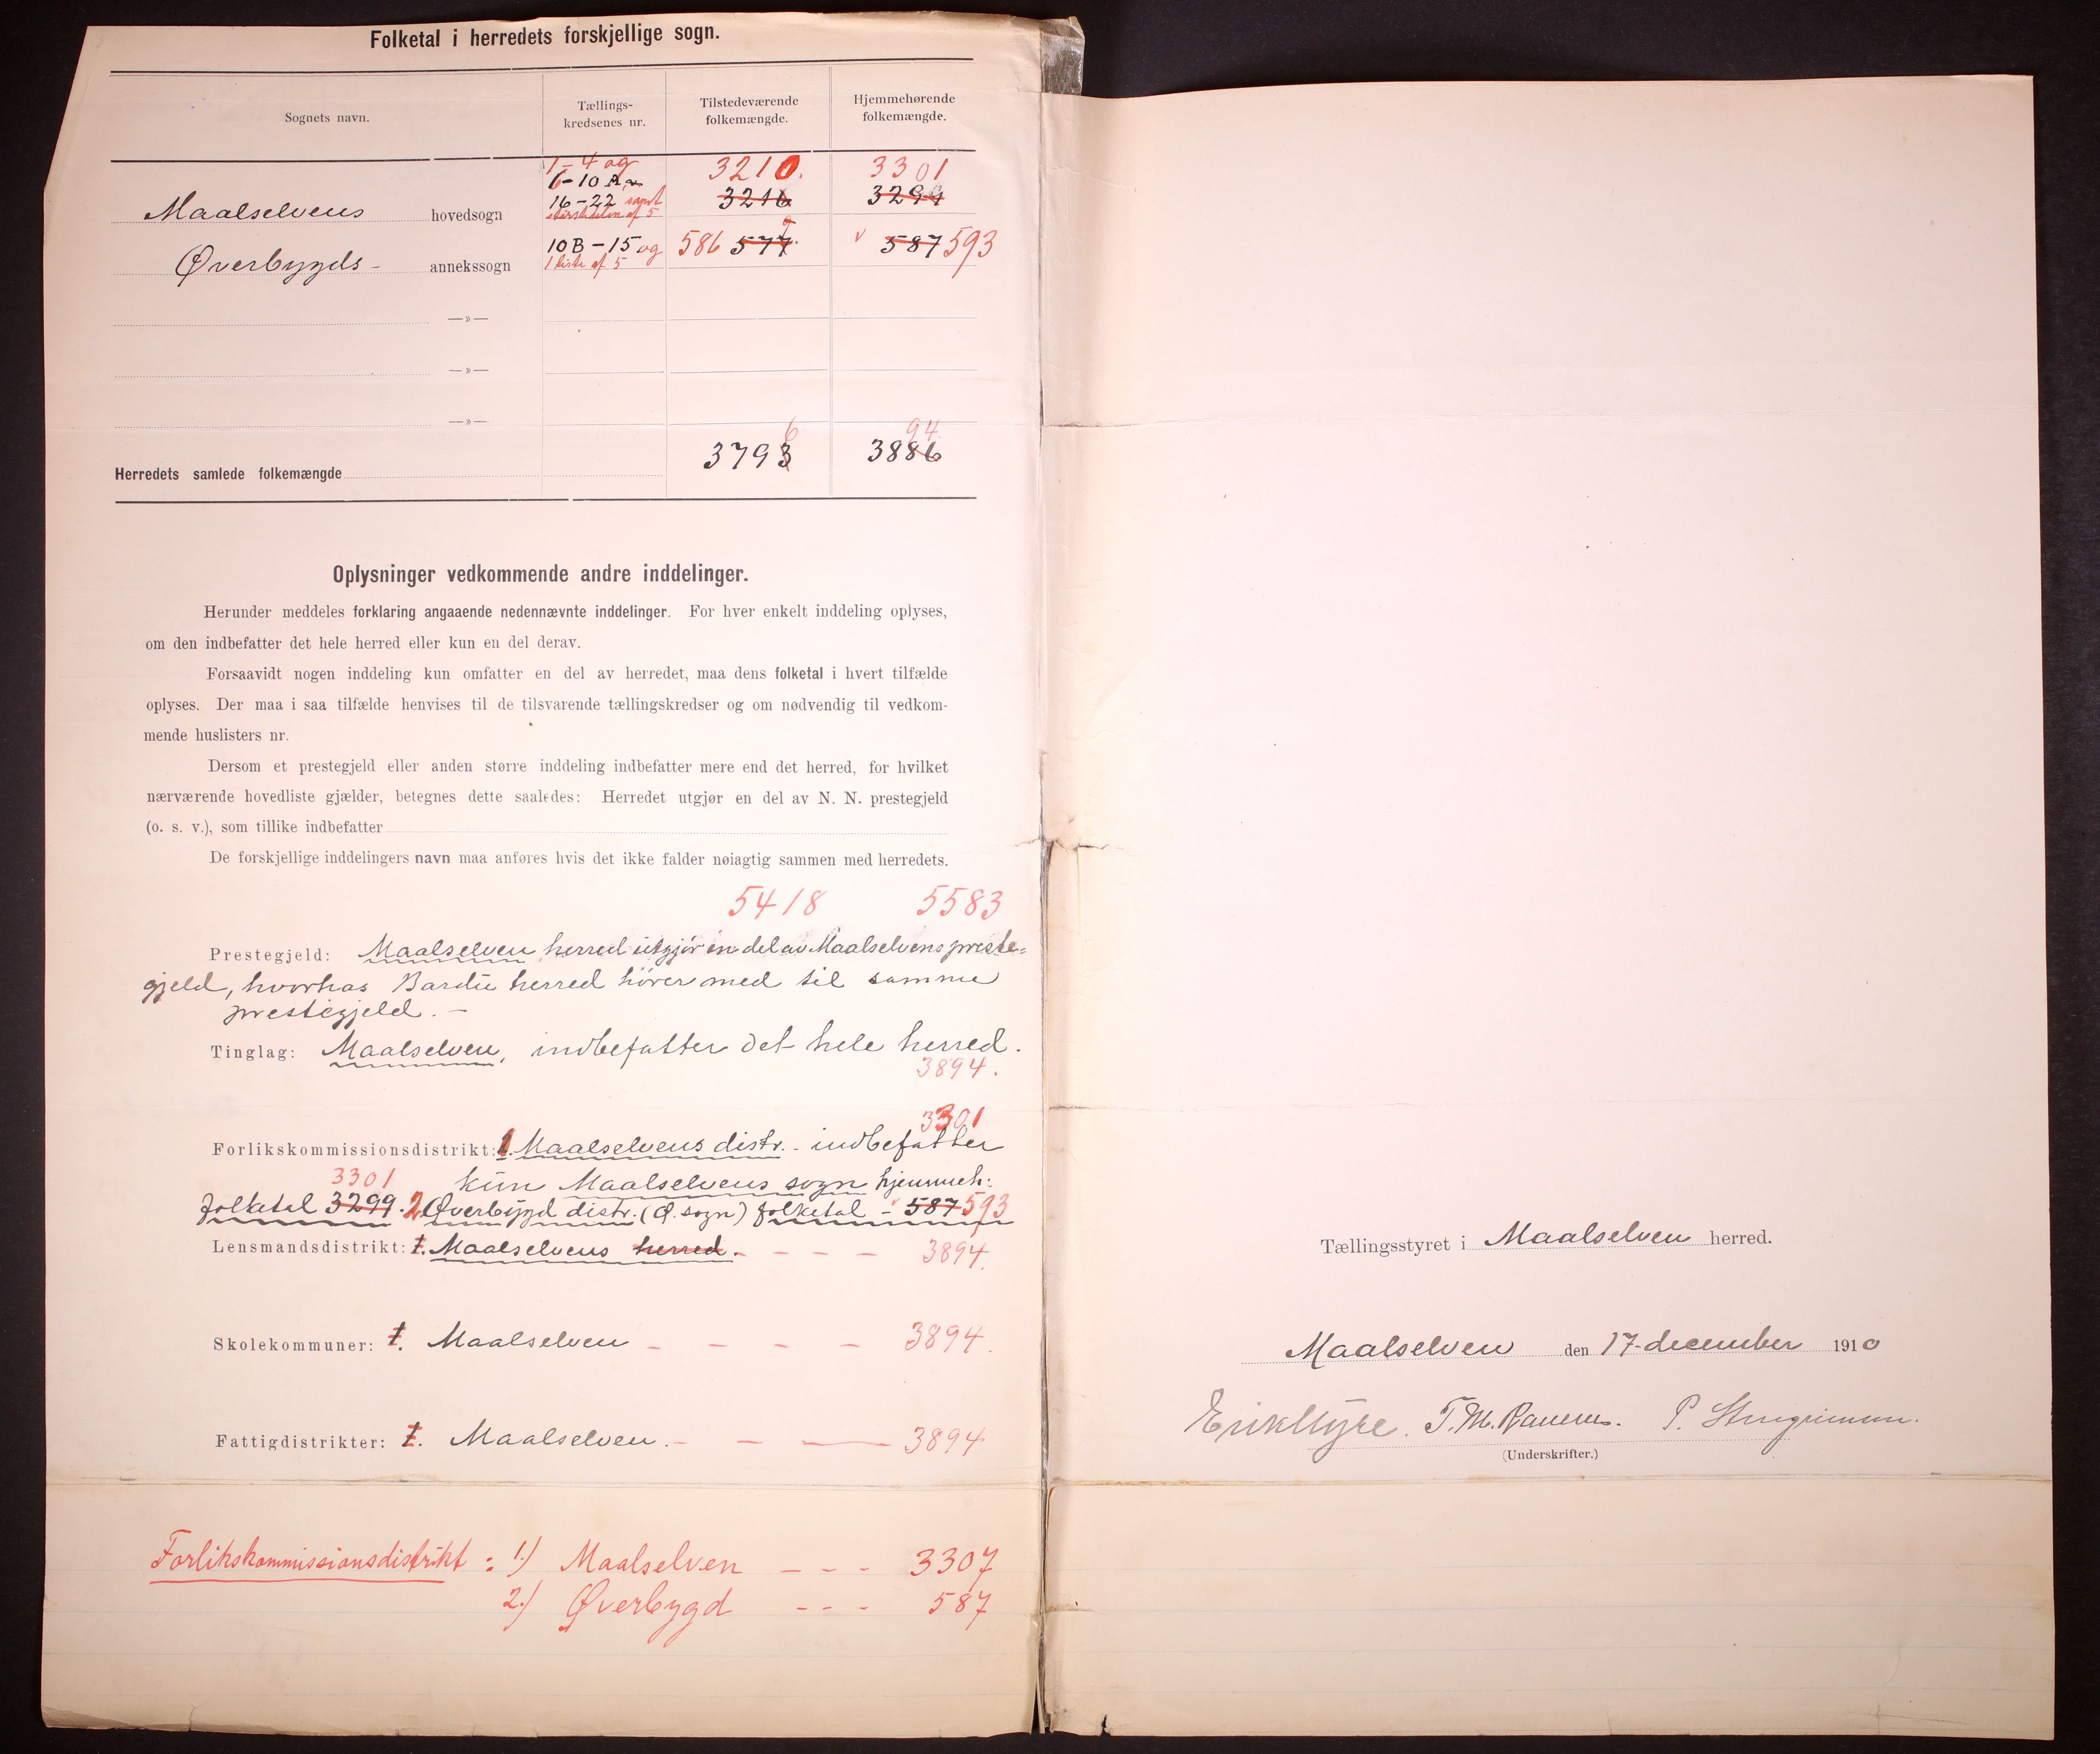 Folketal i herredets forskjellige sogn.
Sognets navn.
Tællings-
kredsenes nr.
Tilstedeværende
folkemængde.
Hjemmehørende
folkemængde.
1-4 og
6-10 A
16-22 samt
af 5
3210.
3216
3301
3299
Maalselvens hovedsogn
10B-15 og
1 liste af 5
586 577
587 593
Øverbygds - annekssogn
—»—
—»—
—»—
6
94
Herredets samlede folkemængde 3793 3886
Oplysninger vedkommende andre inddelinger.
Herunder meddeles forklaring angaaende nedennævnte inddelinger. For hver enkelt inddeling oplyses,
om den indbefatter det hele herred eller kun en del derav.
Forsaavidt nogen inddeling kun omfatter en del av herredet, maa dens folketal i hvert tilfælde
oplyses. Der maa i saa tilfælde henvises til de tilsvarende tællingskredser og om nødvendig til vedkom-
mende huslisters nr.
Dersom et prestegjeld eller anden større inddeling indbefatter mere end det herred, for hvilket
nærværende hovedliste gjælder, betegnes dette saaledes: Herredet utgjør en del av N. N. prestegjeld
(o. s. v.), som tillike indbefatter
De forskjellige inddelingers navn maa anføres hvis det ikke falder nøiagtig sammen med herredets.
5418 5583
Prestegjeld: Maalselven herred utgjør en del av Maalselvens preste-
gjeld, hvorhos Bardu herred hører med til samme
prestegjeld. -
Tinglag: Maalselven, indbefatter det hele herred.
3894.
3301
Forlikskommissionsdistrikt: 1. Maalselvens distr. - indbefatter
3301 kun Maalselvens sogn hjemmeh:
folketal 3299. 2. Øverbygd distr. (Ø. sogn) folketal - 587 593
Lensmandsdistrikt: 1. Maalselvens herred. - - - - 3894.
Skolekommuner: 1. Maalselven - - - - 3894.
Fattigdistrikter: 1. Maalselven. - - — 3894
Forlikskommissionsdistrikt : 1.) Maalselven - - - 3307
2.) Øverbygd - - - 587
Tællingsstyret i Maalselven herred.
Maalselven den 17-december 1910
T. M. P.
(Underskrifter.)